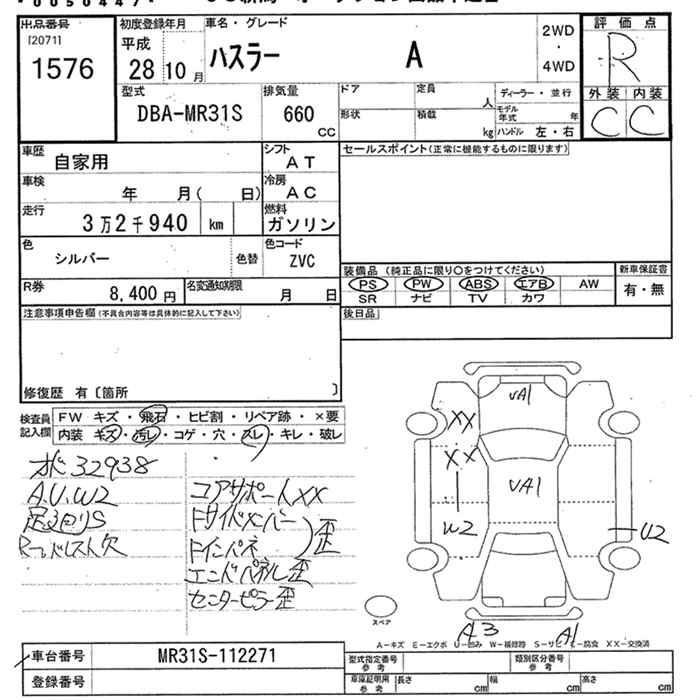 出品番号
[20711
1576
初度登録年月
平成
28 10 月
車名・グレード
ハスラー A
2WD
・
4WD
評価点
R
外装 内装
C C
型式
DBA-MR31S
排気量
660
CC
ドア
定員
人
ディーラー・並行
モデル年式
年
形状
積載
kg
ハンドル 左・右
車歴
自家用
シフト
AT
セールスポイント(正常に機能するものに限ります)
車検
年 月( 日)
冷房
AC
走行
3万2千940 km
燃料
ガソリン
色
シルバー
色替
色コード
ZVC
装備品 (純正品に限り○をつけてください)
新車保証書
PS PW ABS エアB AW
有・無
SR ナビ TV カワ
R券
8,400 円
名変通知期限
月 日
後日品
注意事項申告欄 (不具合内容等は具体的に記入して下さい)
修復歴 有〔箇所 〕
検査員記入欄
FW キズ・飛石・ヒビ割・リペア跡・×要
内装 キズ・汚レ・コゲ・穴・スレ・キレ・破レ
32938
A.U.W2
足回りS
コアサポートXX
サイドメンバー
インパネ
歪
エンドパネル歪
センターピラー歪
VA1
XX
XX
VA1
W2
U2
A3
A1
スペア
A-キズ E-エクボ U-凹み W-補修跡 S-サビ C-腐食 XX-交換済
車台番号
MR31S-112271
登録番号
型式指定番号
参考
類別区分番号
参考
車庫証明用
参考
長さ cm
幅 cm
高さ cm